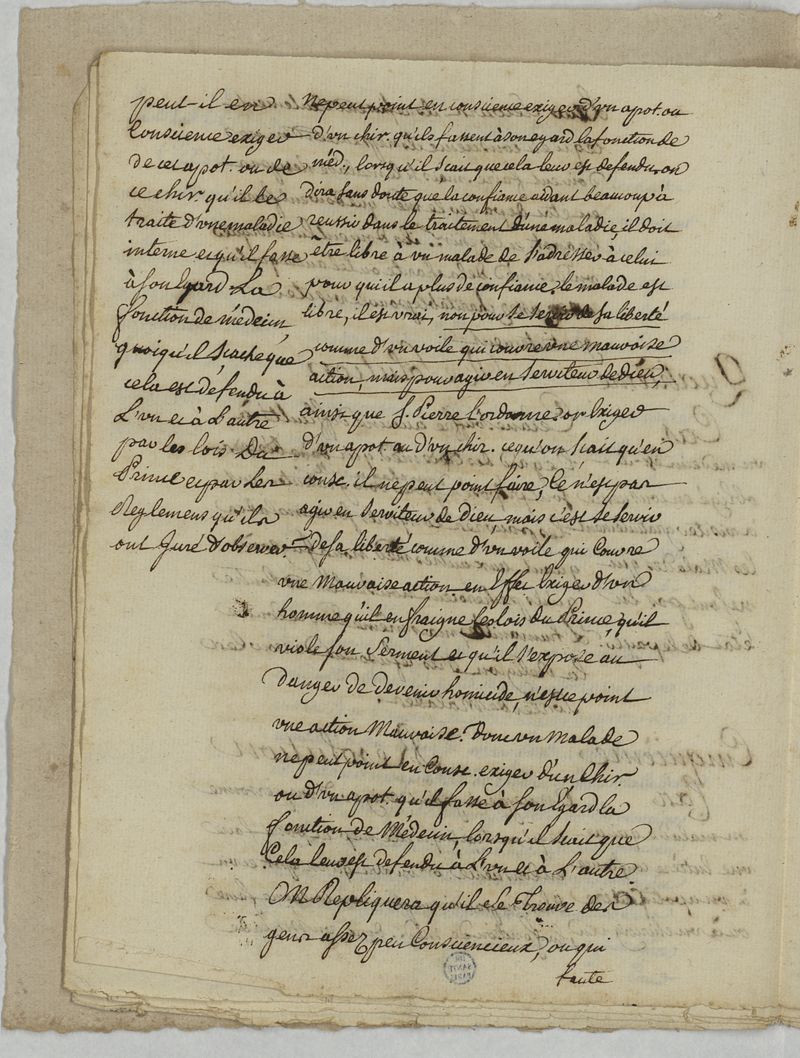 peut-il en
Conscience exiger
de cet apot. ou de
ce chir. qu'il le
traite d'vne maladie
interne et qu'il fasse
à son Egard La
fonction de médecin
quoiqu'il scache que
cela est défendu à
L'vn et à L'autre
par les lois Du
Prince et par les
Reglemens qu'ils
ont Juré d'observer.
ne peut point en conscience exiger d'vn apot. ou
d'vn chir. qu'ils fassent à son egard la fonction de
méd., lorsqu'il scait que cela leur est defendu. on
dira sans doute que la confiance aidant beaucoup à
reussir dans le traitement d'une maladie, il doit
être libre à vn malade de s'adresser à celui
pour qui il a plus de confiance. le malade est
libre, il est vrai, non pour se servir de sa liberté
comme d'vn voile qui couvre vne mauvaise
action, mais pour agir en serviteur de dieu,
ainsi que S. Pierre l'ordonne. or Exiger
d'vn apot. ou d'vn chir. ce qu'on scait qu'en
consc. il ne peut point faire, Ce n'est pas
agir en Serviteur de Dieu, mais c'est se servir
de sa liberté comme d'vn voile qui Couvre
vne Mauvaise action. en Effet Exiger d'vn
homme qu'il enfraigne les lois du Prince, qu'il
viole son Serment et qu'il s'expose au
Danger de Devenir homicide, n'est ce point
vne action Mauvaise. Donc vn Malade
ne peut point en Consc. exiger d'un Chir.
ou d'vn apot. qu'il fasse à son Egard la
fonction de Médecin, lorsqu'il scait que
Cela leur est defendu à L'vn et à L'autre
ON Repliquera qu'il se Trouve des
gens assez peu Consciencieux, ou qui
faute